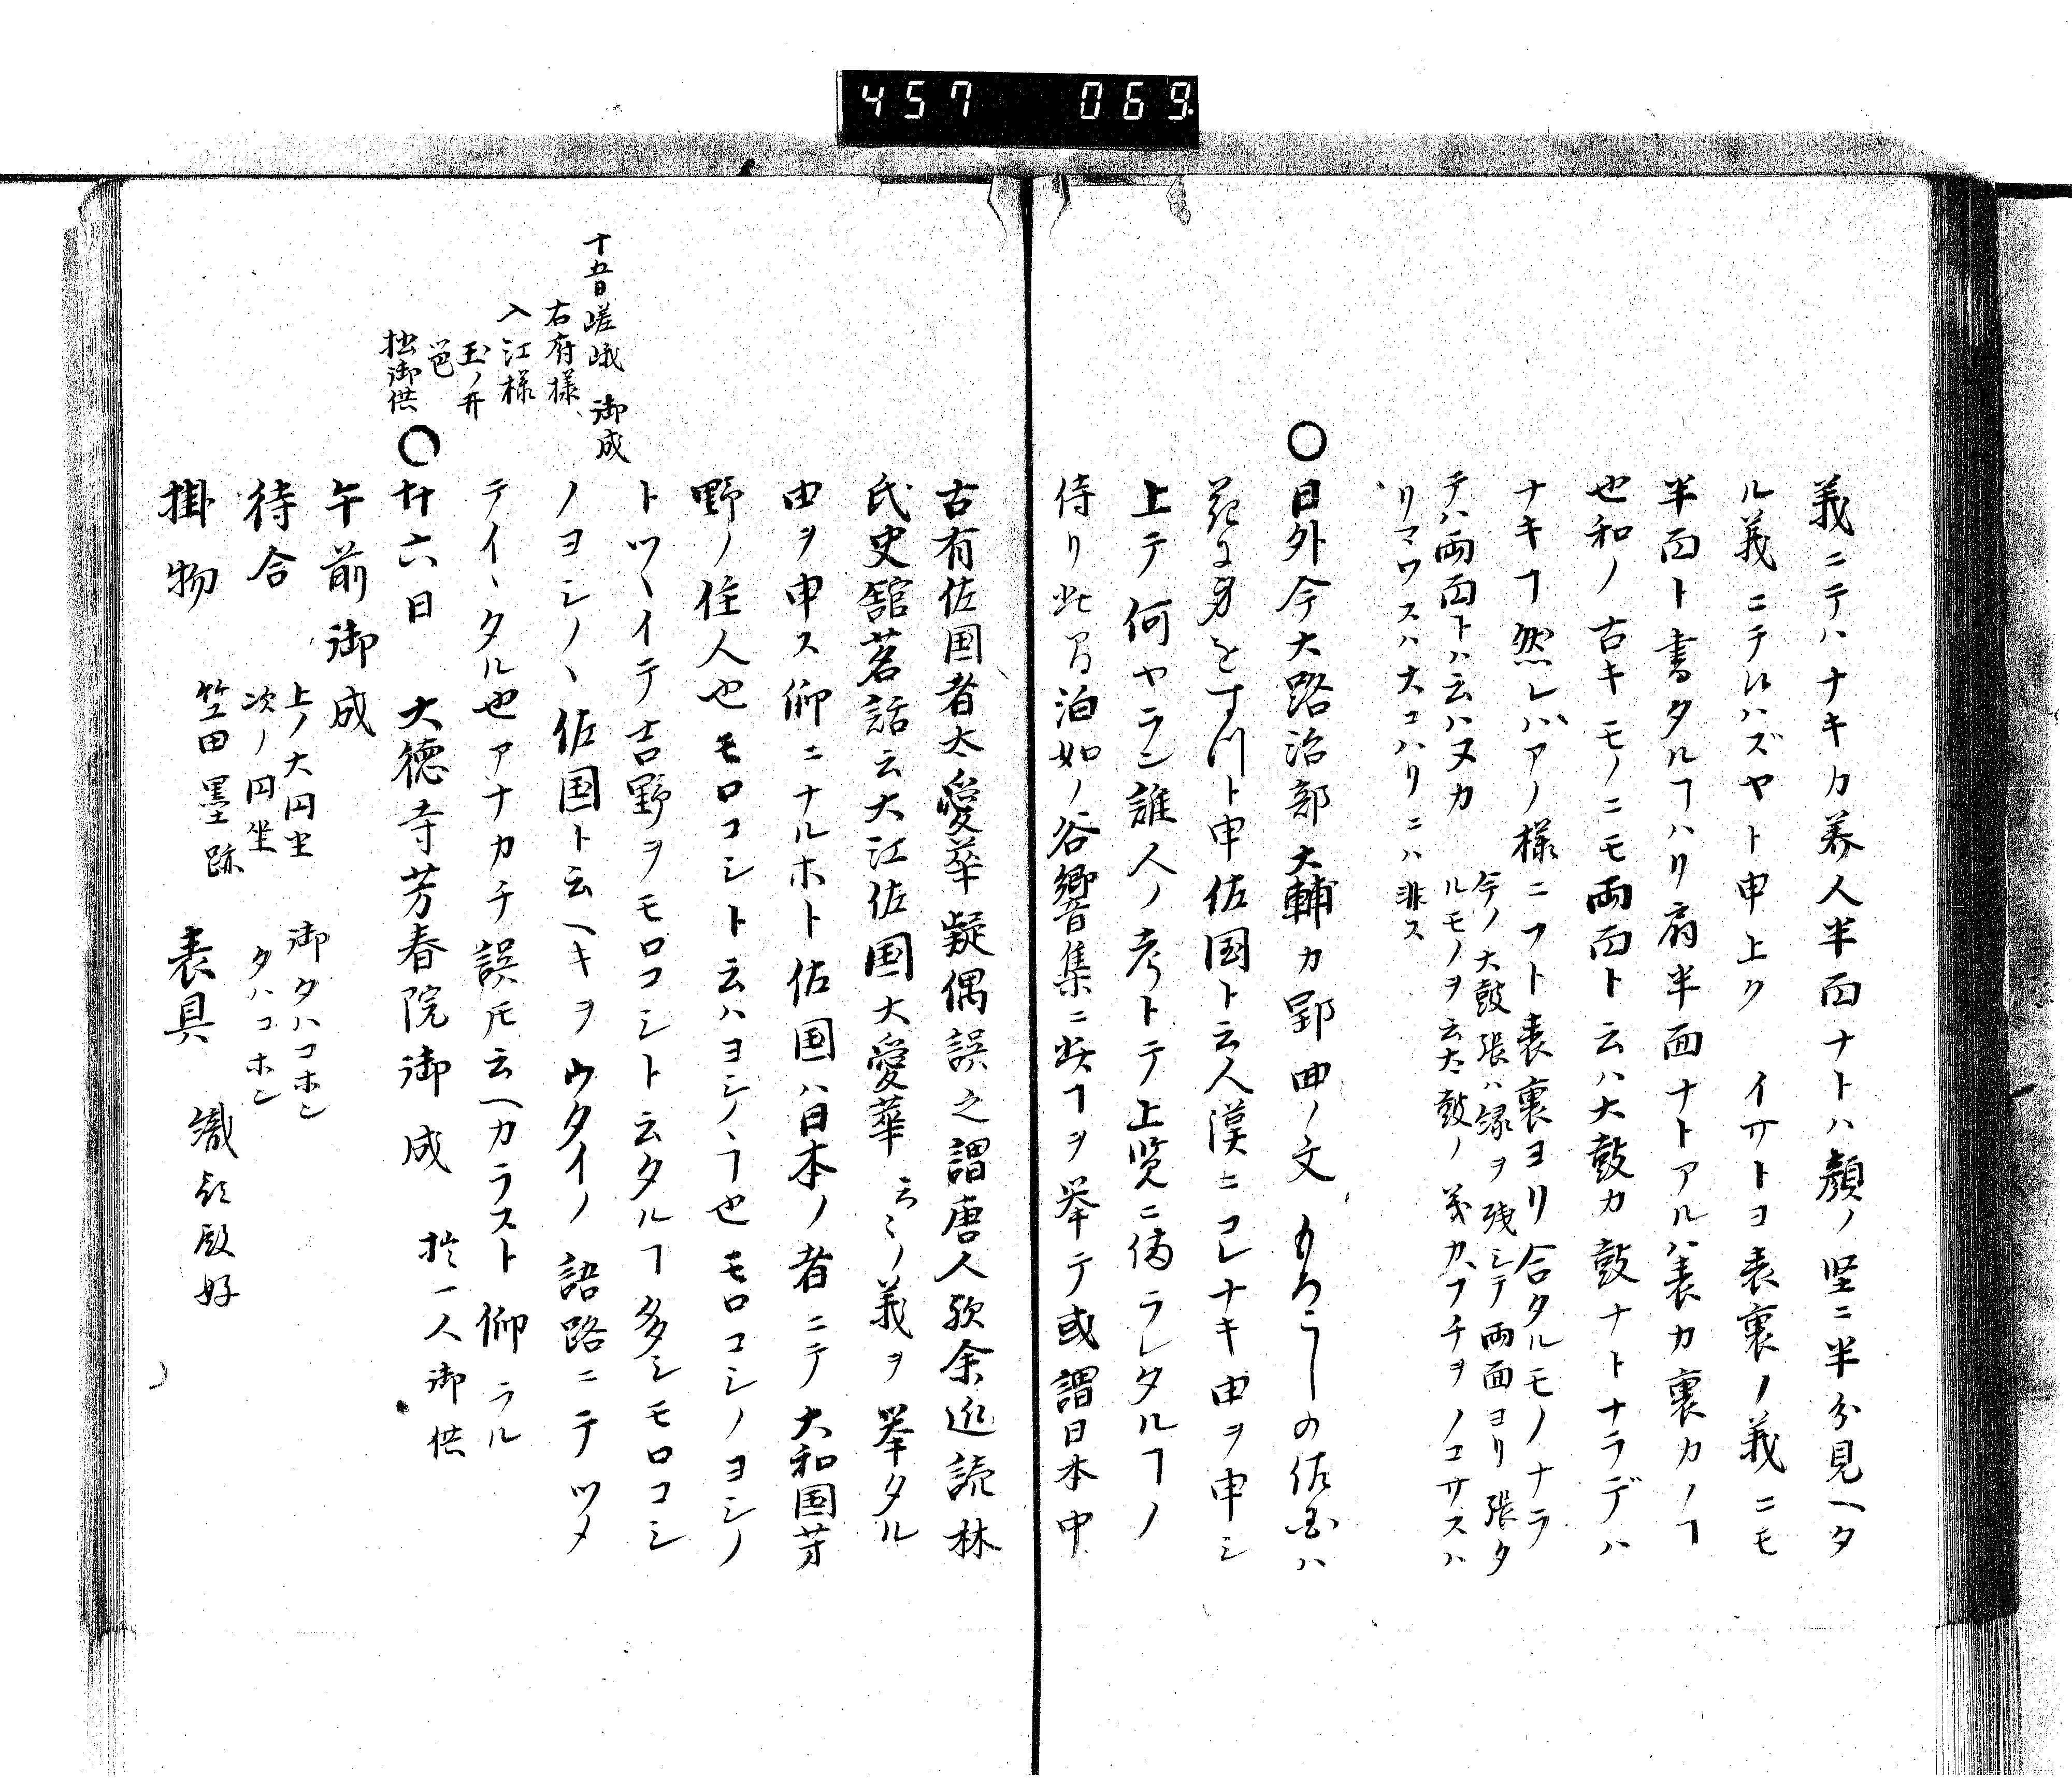 457 069
義ニテハナキカ美人半面ナトハ顔ノ竪ニ半分見ヘタ
ル義ニテ候ハズヤト申上ク イヤトヨ表裏ノ義ニモ
半面ト書タルヿハリ扇半面ナトアルハ表カ裏カノヿ
也和ノ古キモノニモ両面ト云ハ大鼓カ鼓ナトナラデハ
ナキヿ然レバアノ様ニフト表裏ヨリ合タルモノナラ
テハ両面トハ云ハヌカ
今ノ大鼓張ハ縁ヲ残シテ両面ヨリ張タ
ルモノヲ云太鼓ノ義カフチヲノコサスハ
リマワスハ大コハリニハ非ス
○日外今大路治部大輔カ郢曲ノ文もろこしの佐国ハ
花に身をすつト申佐国ト云人漢ニコレナキ由ヲ申シ
上テ何ヤラン誰人ノ考トテ上覧ニ備ラレタルヿノ
侍リ此間泊如ノ谷響集ニ此ヿヲ挙テ或謂日本中
古有佐国者太愛華疑偶誤之謂唐人歟余近読林
氏史館茗話云大江佐国大愛華云々ノ義ヲ挙タル
由ヲ申ス仰ニナルホト佐国ハ日本ノ者ニテ大和国芳
野ノ住人也モロコシト云ハヨシノヽヿ也モロコシノヨシノ
トツヽイテ吉野ヲモロコシト云タルヿ多シモロコシ
ノヨシノヽ佐国ト云ヘキヲウタイノ語路ニテツメ
テイヽタル也アナカチ誤トモ云ヘカラスト仰ラル
十五日嵯峨御成
右府様
入江様
玉ノ井
邑
拙御供
○廿六日 大徳寺芳春院御成 拙一人御供
午前御成
待合 上ノ大円坐 御タハコホン
次ノ円坐 タハコホン
掛物 竺田墨跡 表具 織部殿好